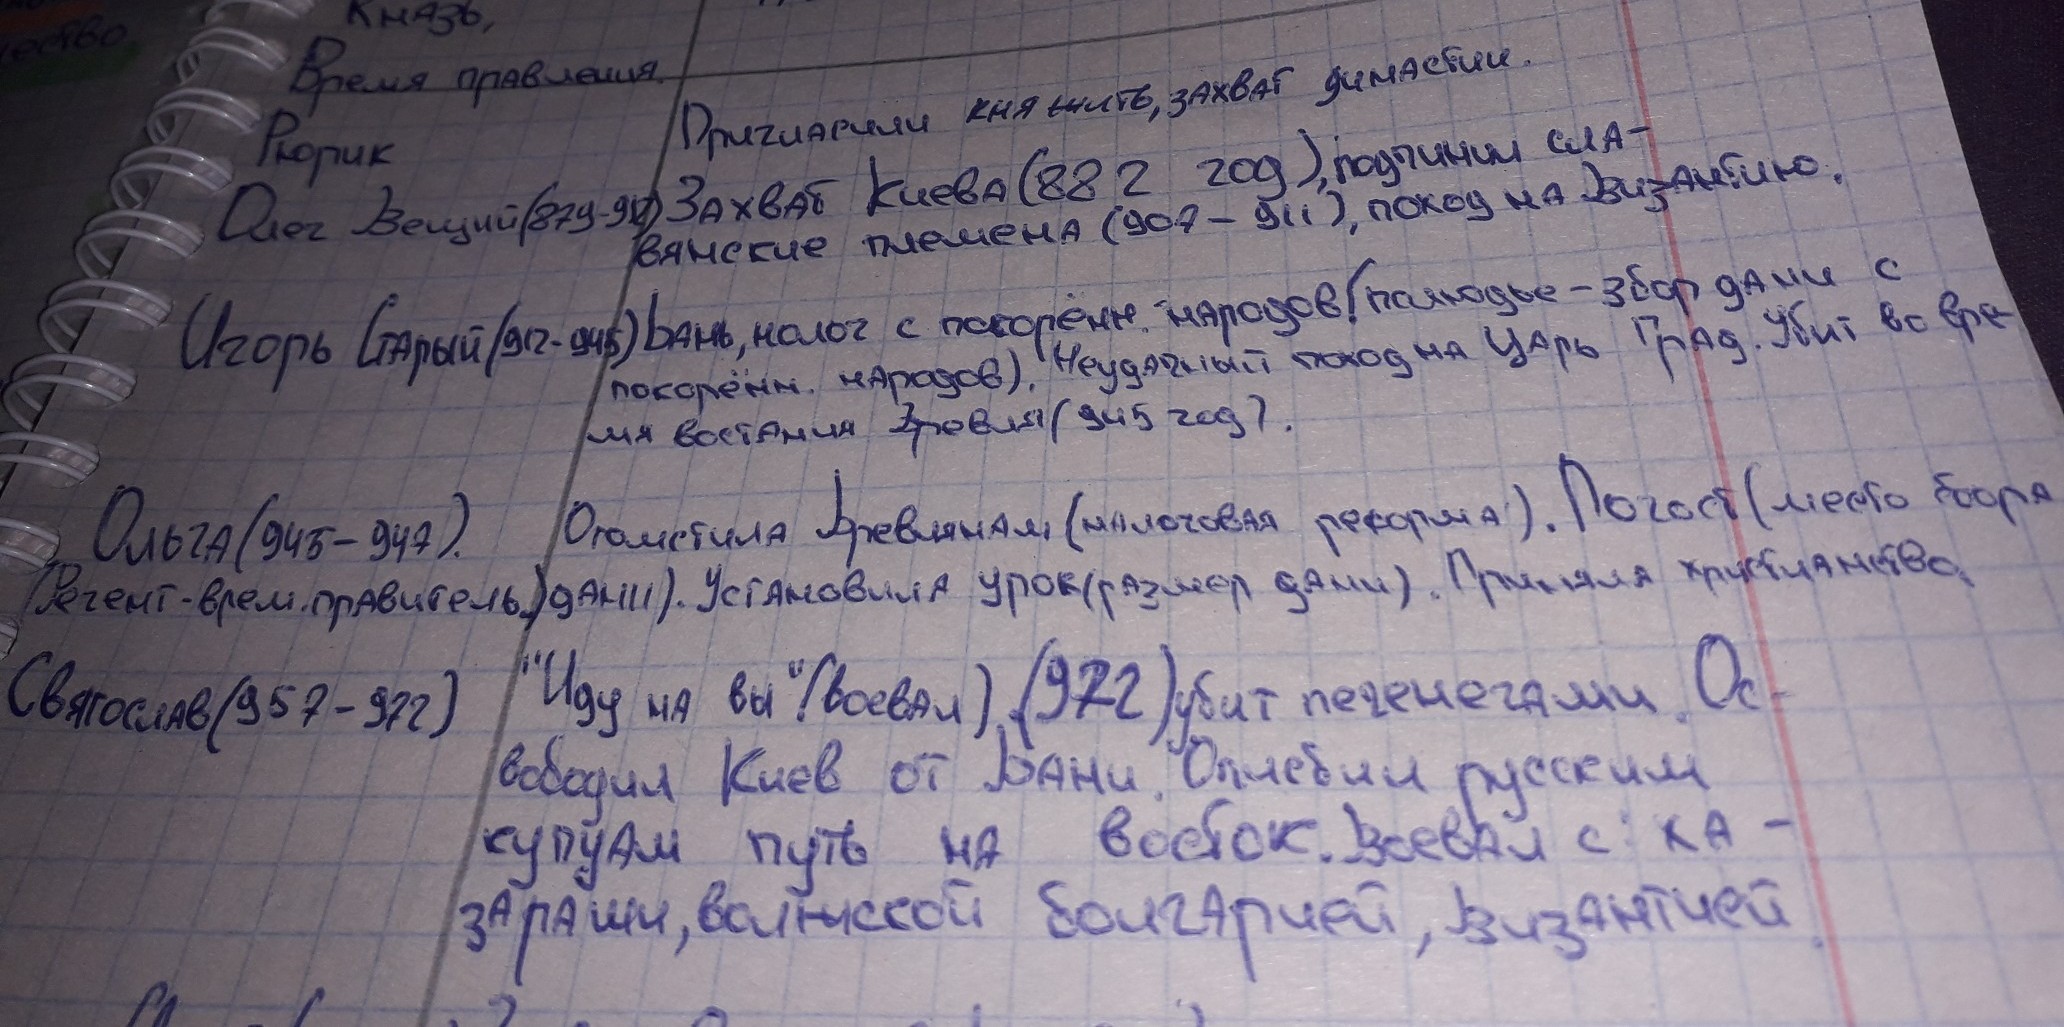 Князь,
Время правления.
Рюрик Пригласили княжить, захват династии.
Олег Вещий (879-912) Захват Киева (882 год), подчинил сла-
вянские племена (907-911), поход на Византию.
Игорь Старый (912-945) Дань, налог с покорённ. народов (полюдье - збор дани с
покорённ. народов). Неудачный поход на Царь Град. Убит во вре-
мя востания Древлян (945 год).
Ольга (945-947). Отомстила Древлянам (налоговая реформа). Погост (место сбора
(Регент-врем. правитель.) дани). Установила урок (размер дани). Приняла христианство.
Святослав (957-972) "Иду на вы" (воевал). (972) убит печенегами. Ос-
вободил Киев от Дани. Ослебил русским
купцам путь на восток. Воевал с: ха-
зарами, волжской болгарией, Византией.